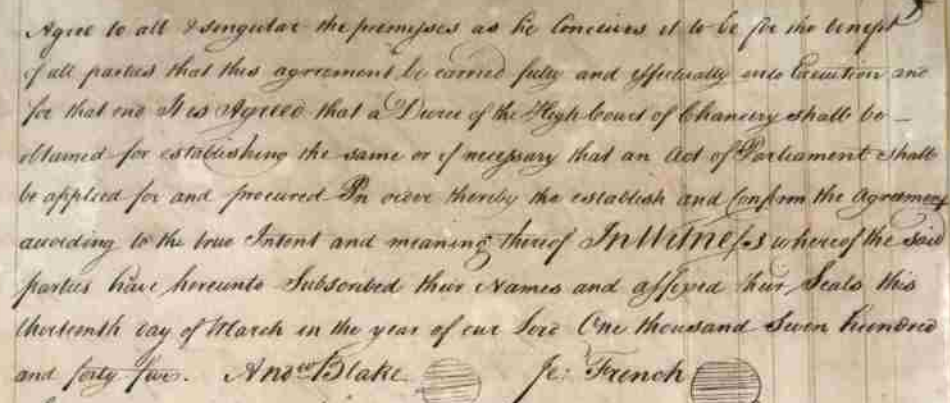 Agree to all & singular the premisses as he Conceives it to be for the benefit
of all parties that this agreement be carried fully and effectually into Execution and
for that end It is Agreed that a Decree of the High Court of Chancery shall be
obtained for establishing the same or if necessary that an Act of Parliament shall
be applied for and procured In order thereby the establish and Confirm the Agreement
according to the true Intent and meaning thereof In Witness whereof the said
parties have hereunto Subscribed their Names and affixed their Seals this
thirteenth day of March in the year of our Lord One thousand Seven hundred
and forty Blake Je: French